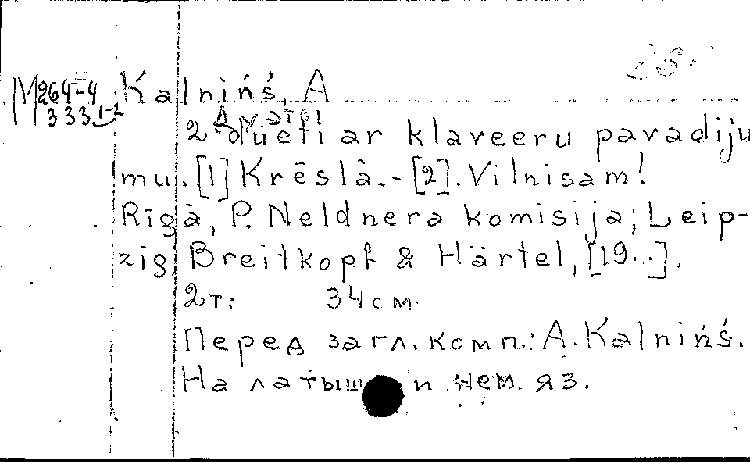 М 264-4 Kalniņš, A
333 1-2
Дуэты
2 dueti ar klaveeru pavadiju
mu. [1] Krēslā. - [2]. Vilnisam!
Rīgā, P. Neldnera komisija; Leip-
zig Breitkopf & Härtel, [19..].
2 т: 34 см.
Перед загл. комп.: A. Kalniņš.
На латыш и нем. яз.